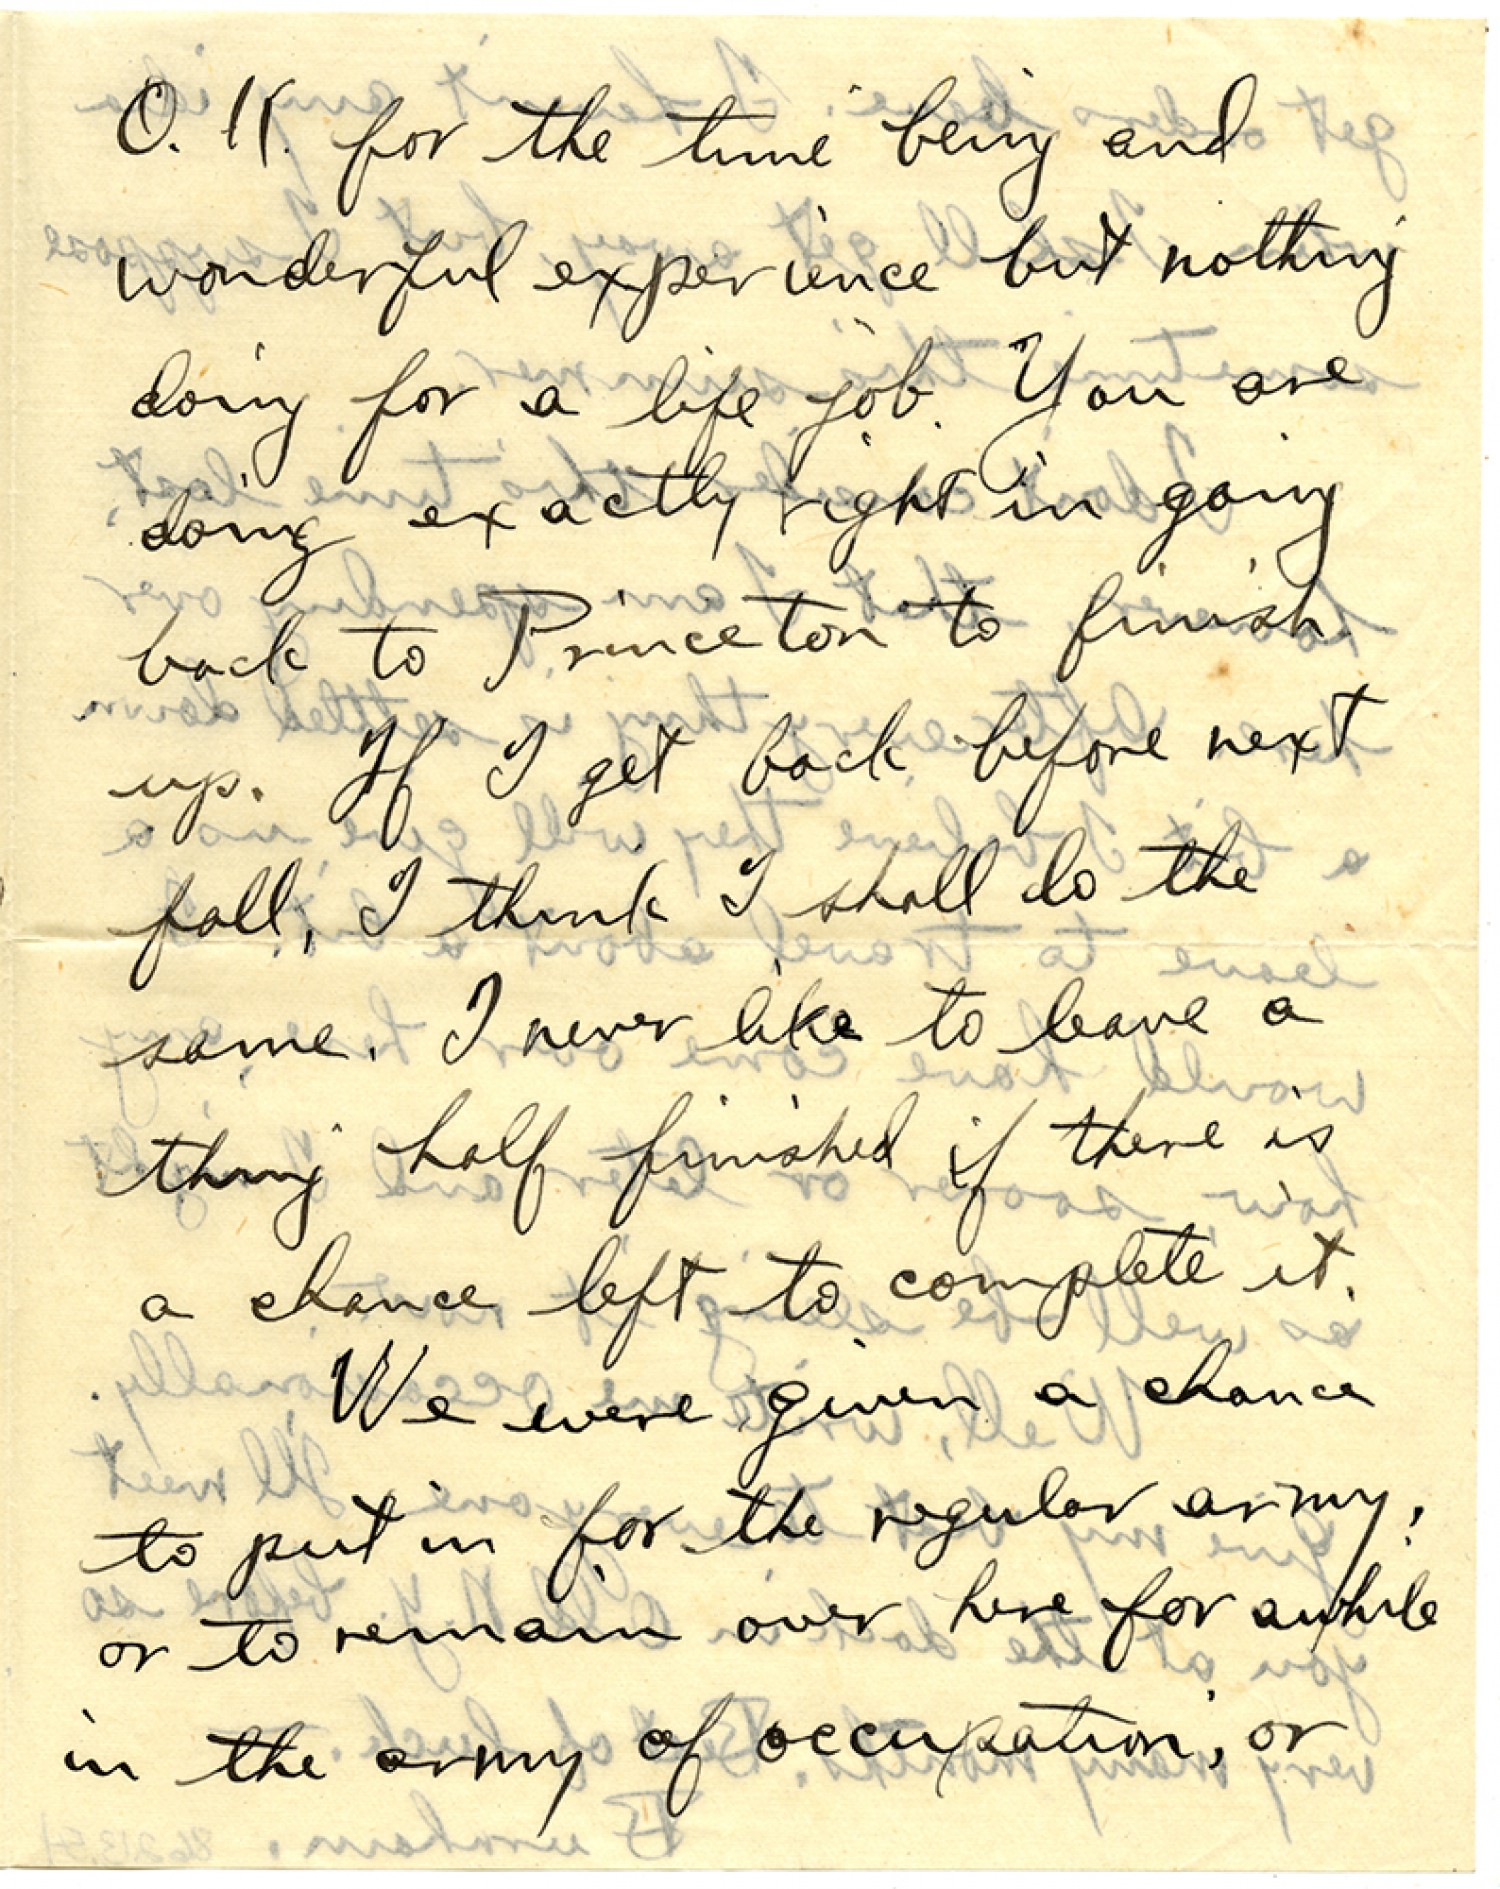 O.K. for the time being and
wonderful experience but nothing
doing for a life job. You are
doing exactly right in going
back to Princeton to finish
up. If I get back before next
fall, I think I shall do the
same. I never like to leave a
thing half finished if there is
a chance left to complete it.
We were given a chance
to put in for the regular army,
or to remain over here for awhile
in the army of occupation, or